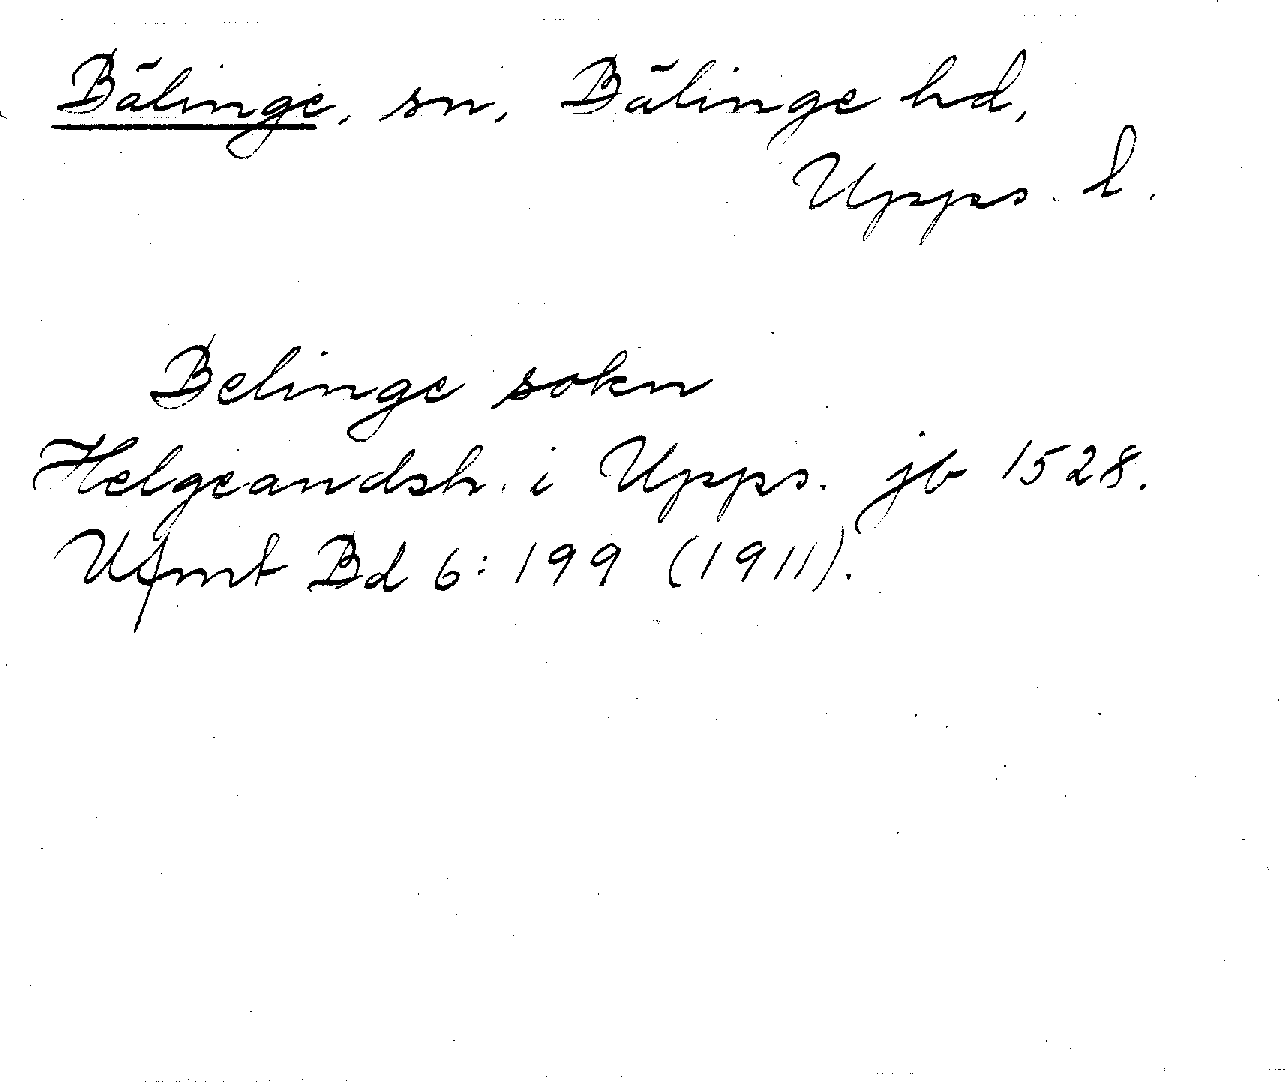 Bälinge, sn, Bälinge hd,
Upps. l.
Belinge sokn
Helgeandsh. i Upps. jb 1528.
Ufmt Bd 6:199 (1911).